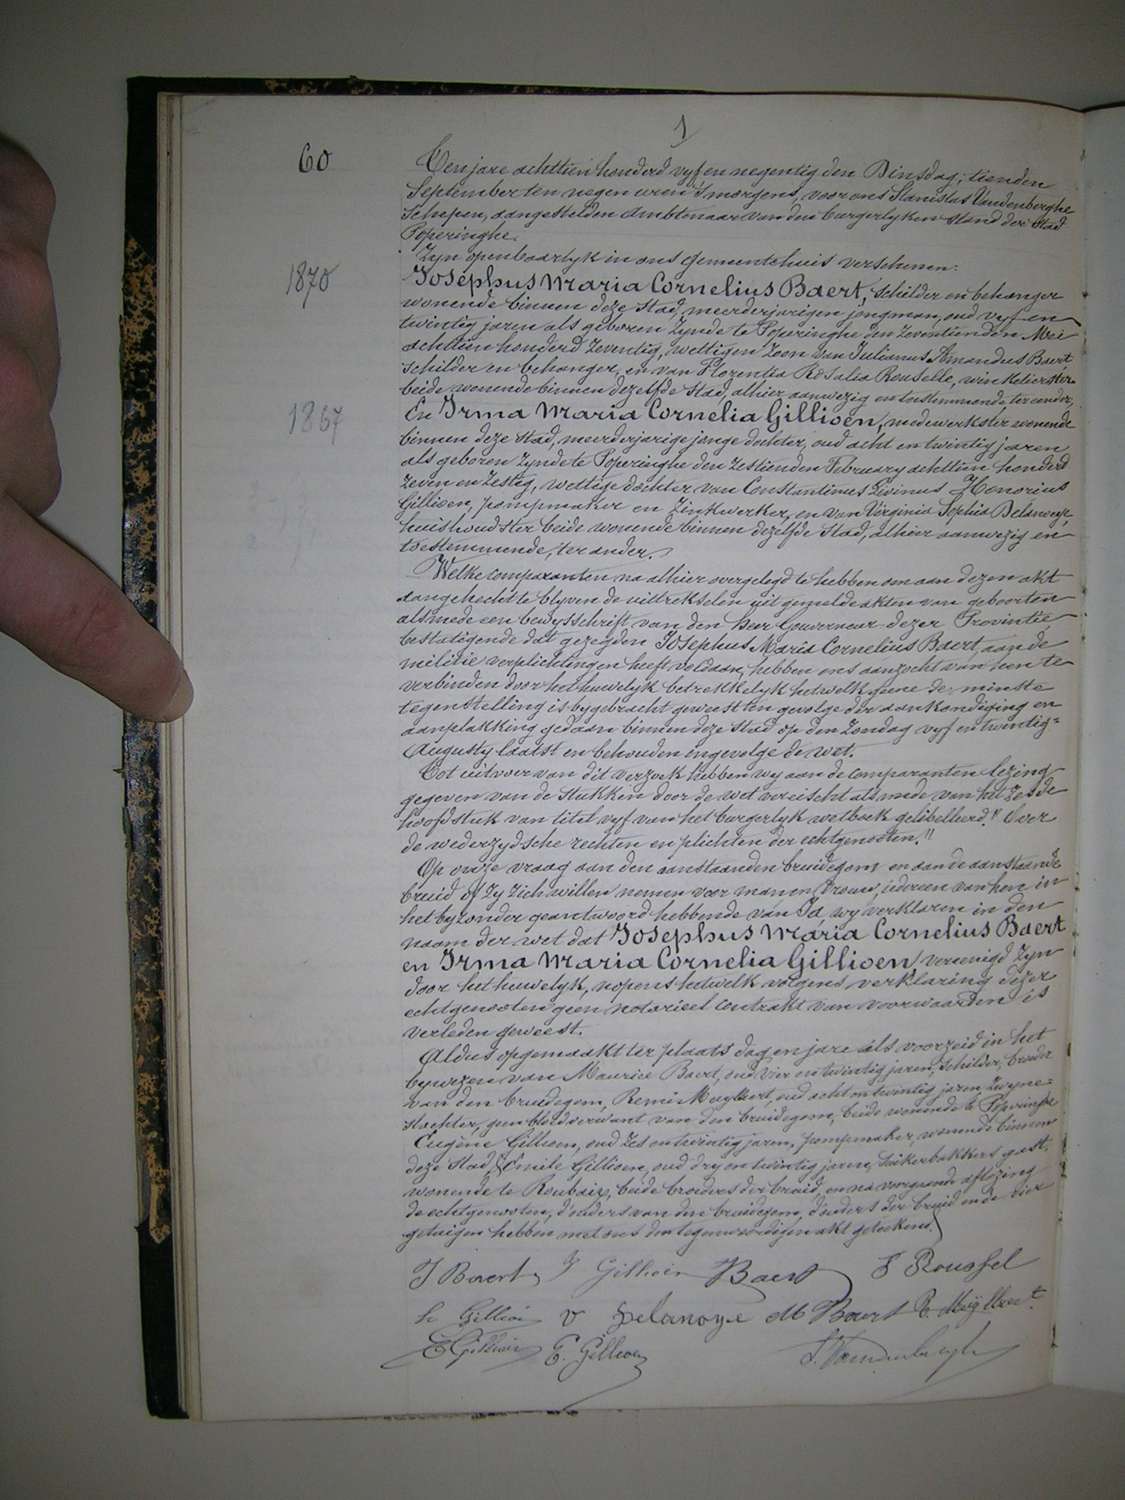 1
60
Ten jare achttien honderd vyf en negentig den Dinsdag, tienden
September ten negen uren 's morgens, voor ons Stanislas Vandenberghe
Schepen, aangestelden Ambtenaar van den burgerlyken stand der Stad
Poperinghe.
Zyn openbaarlyk in ons gemeentehuis verschenen:
1870
Josephus Maria Cornelius Baert, schilder en behanger
wonende binnen deze stad, meerderjarigen jongman, oud vyf en
twintig jaren als geboren zynde te Poperinghe den zeventienden Mei
achttien honderd zeventig, wettigen zoon van Julianus Amandus Baert,
schilder en behanger, en van Florentia Rosalia Rouselle, winkelierster
beide wonende binnen dezelfde stad, alhier aanwezig en toestemmende, ter eender;
1867
En Irma Maria Cornelia Gillioen, medewerkster wonende
binnen deze stad, meerderjarige jonge dochter, oud acht en twintig jaren
als geboren zynde te Poperinghe den zestienden February achttien honderd
zeven en zestig, wettige dochter van Constantinus Livinus Honorius
Gillioen, pompmaker en zinkwerker, en van Virginia Sophia Delanoye,
huishoudster beide wonende binnen dezelfde stad, alhier aanwezig en
toestemmende, ter ander.
Welke comparanten na alhier overgelegd te hebben om aan dezen akt
aangehecht te blyven de uittrekselen uit gemelde akten van geboorten
alsmede een bewysschrift van den heer Gouverneur dezer Provintie
bestatigende dat gezegden Josephus Maria Cornelius Baert aan de
militie verplichtingen heeft voldaan, hebben ons aanzocht van hen te
verbinden door het huwelyk betrekkelyk hetwelk geene de minste
tegenstelling is bygebracht geweest ten gevolge der aankondiging en
aanplakking gedaan binnen deze stad op den Zondag vyf en twintig
Augusty laatst en behouden ingevolge de wet.
Tot uitvoer van dit verzoek hebben wy aan de comparanten lezing
gegeven van de stukken door de wet vereischt alsmede van het zesde
hoofdstuk van titel vyf van het burgerlyk wetboek gelibelleerd: "Over
de wederzydsche rechten en plichten der echtgenooten."
Op onze vraag aan den aanstaanden bruidegom en aan de aanstaande
bruid of zy zich willen nemen voor man en vrouw, iedereen van hen in
het byzonder geantwoord hebbende van Ja, wy verklaren in den
naam der wet dat Josephus Maria Cornelius Baert
en Irma Maria Cornelia Gillioen, vereenigd zyn
door het huwelyk, nopens hetwelk volgens verklaring dezer
echtgenooten geen notarieel contrakt van voorwaarden is
verleden geweest.
Aldus opgemaakt ter plaats dag en jare als voorzeid in het
bywezen van Maurice Baert, oud vier en twintig jaren, schilder, broeder
van den bruidegom, Remi Muylaert, oud acht en twintig jaren, zwyne-
slachter, geen bloedverwant van den bruidegom, beide wonende te Poperinghe
Eugène Gillioen, oud zes en twintig jaren, pompmaker, wonende binnen
deze stad, Emile Gillioen, oud dry en twintig jaren, suikerbakkers gast,
wonende te Roubaix, beide broeders der bruid, en na voorgaande aflezing
de echtgenooten, d'ouders van den bruidegom, d'ouders der bruid en de vier
getuigen hebben met ons den tegenwoordigen akt geteekend.
J Baert I Gillioen Baert F Roussel
C Gillioen V Delanoye M Baert R. Muylaert
E Gillioen E. Gillioen S. Vandenberghe